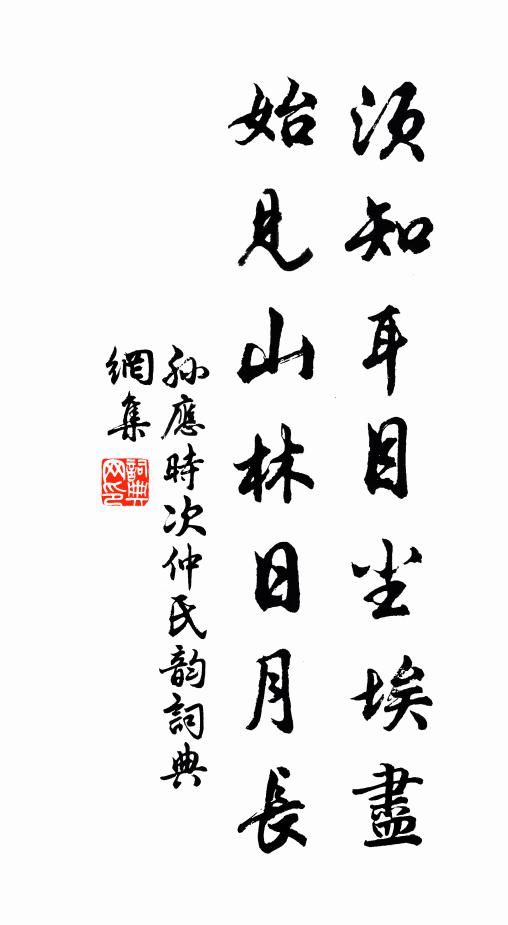 須知耳目尘埃盡
始見山林日月長
孫應時次仲氏韵詞典
網集
詞典網印